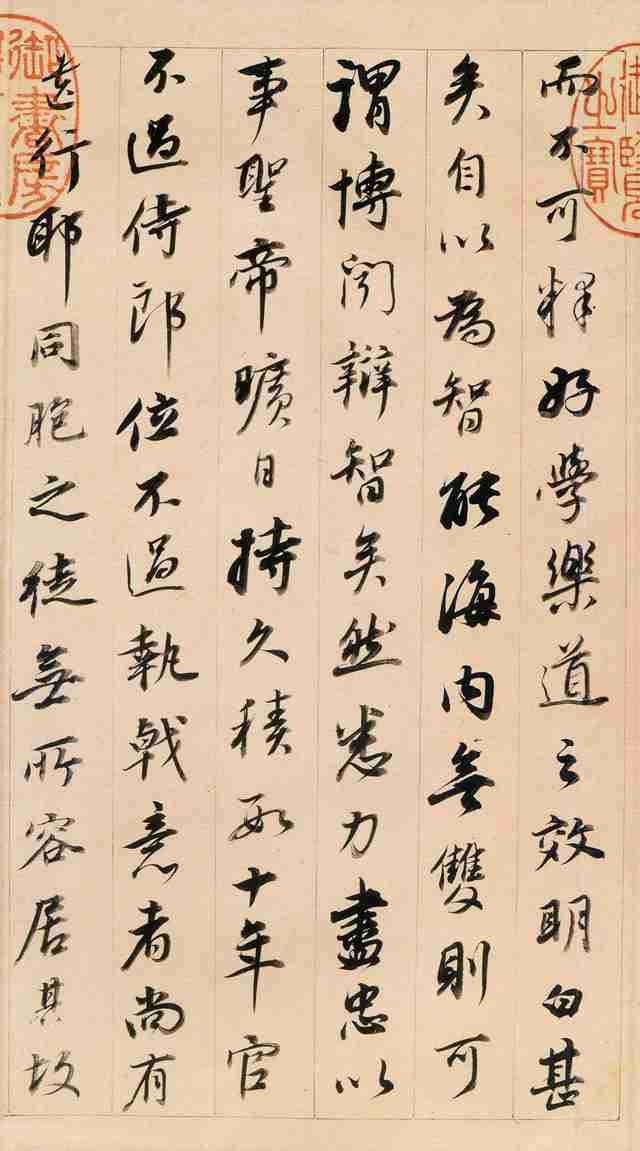 而不可釋好學樂道之效明白甚
矣自以為智能海内無雙則可
謂博聞辯智矣然悉力盡忠以
事聖帝曠日持久積數十年官
不過侍郎位不過執戟意者尚有
遺行耶同胞之徒無所容居其故
御覽
之寶
御書房